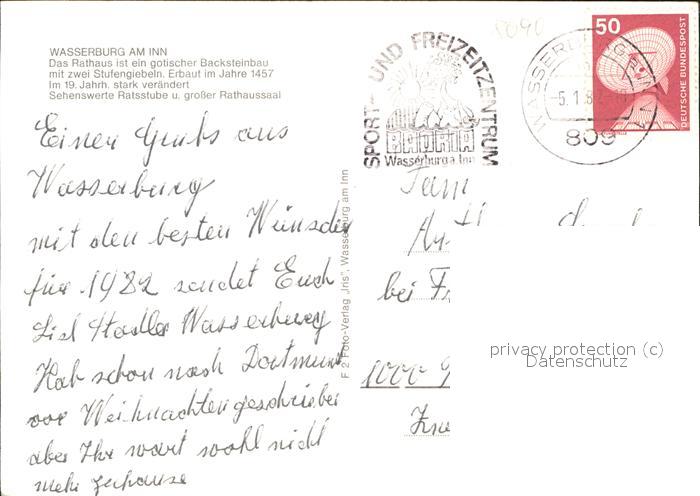 WASSERBURG AM INN
Das Rathaus ist ein gotischer Backsteinbau
mit zwei Stufengiebeln. Erbaut im Jahre 1457
Im 19. Jahrh. stark verändert
Sehenswerte Ratsstube u. großer Rathaussaal
SPORT- UND FREIZEITZENTRUM
BADRIA
Wasserburg a. Inn
809
50
DEUTSCHE BUNDESPOST
Einen Gruß aus
Wasserburg
mit den besten Wünschen
für 1982 sendet Euch
Lisl Stadler Wasserburg
Hab schon nach Dortmund
vor Weihnachten geschrieben
aber Ihr wart wohl nicht
mehr zuhause
F 2 Foto-Verlag „Iris", Wasserburg am Inn
Fam
bei
1000
privacy protection (c)
Datenschutz